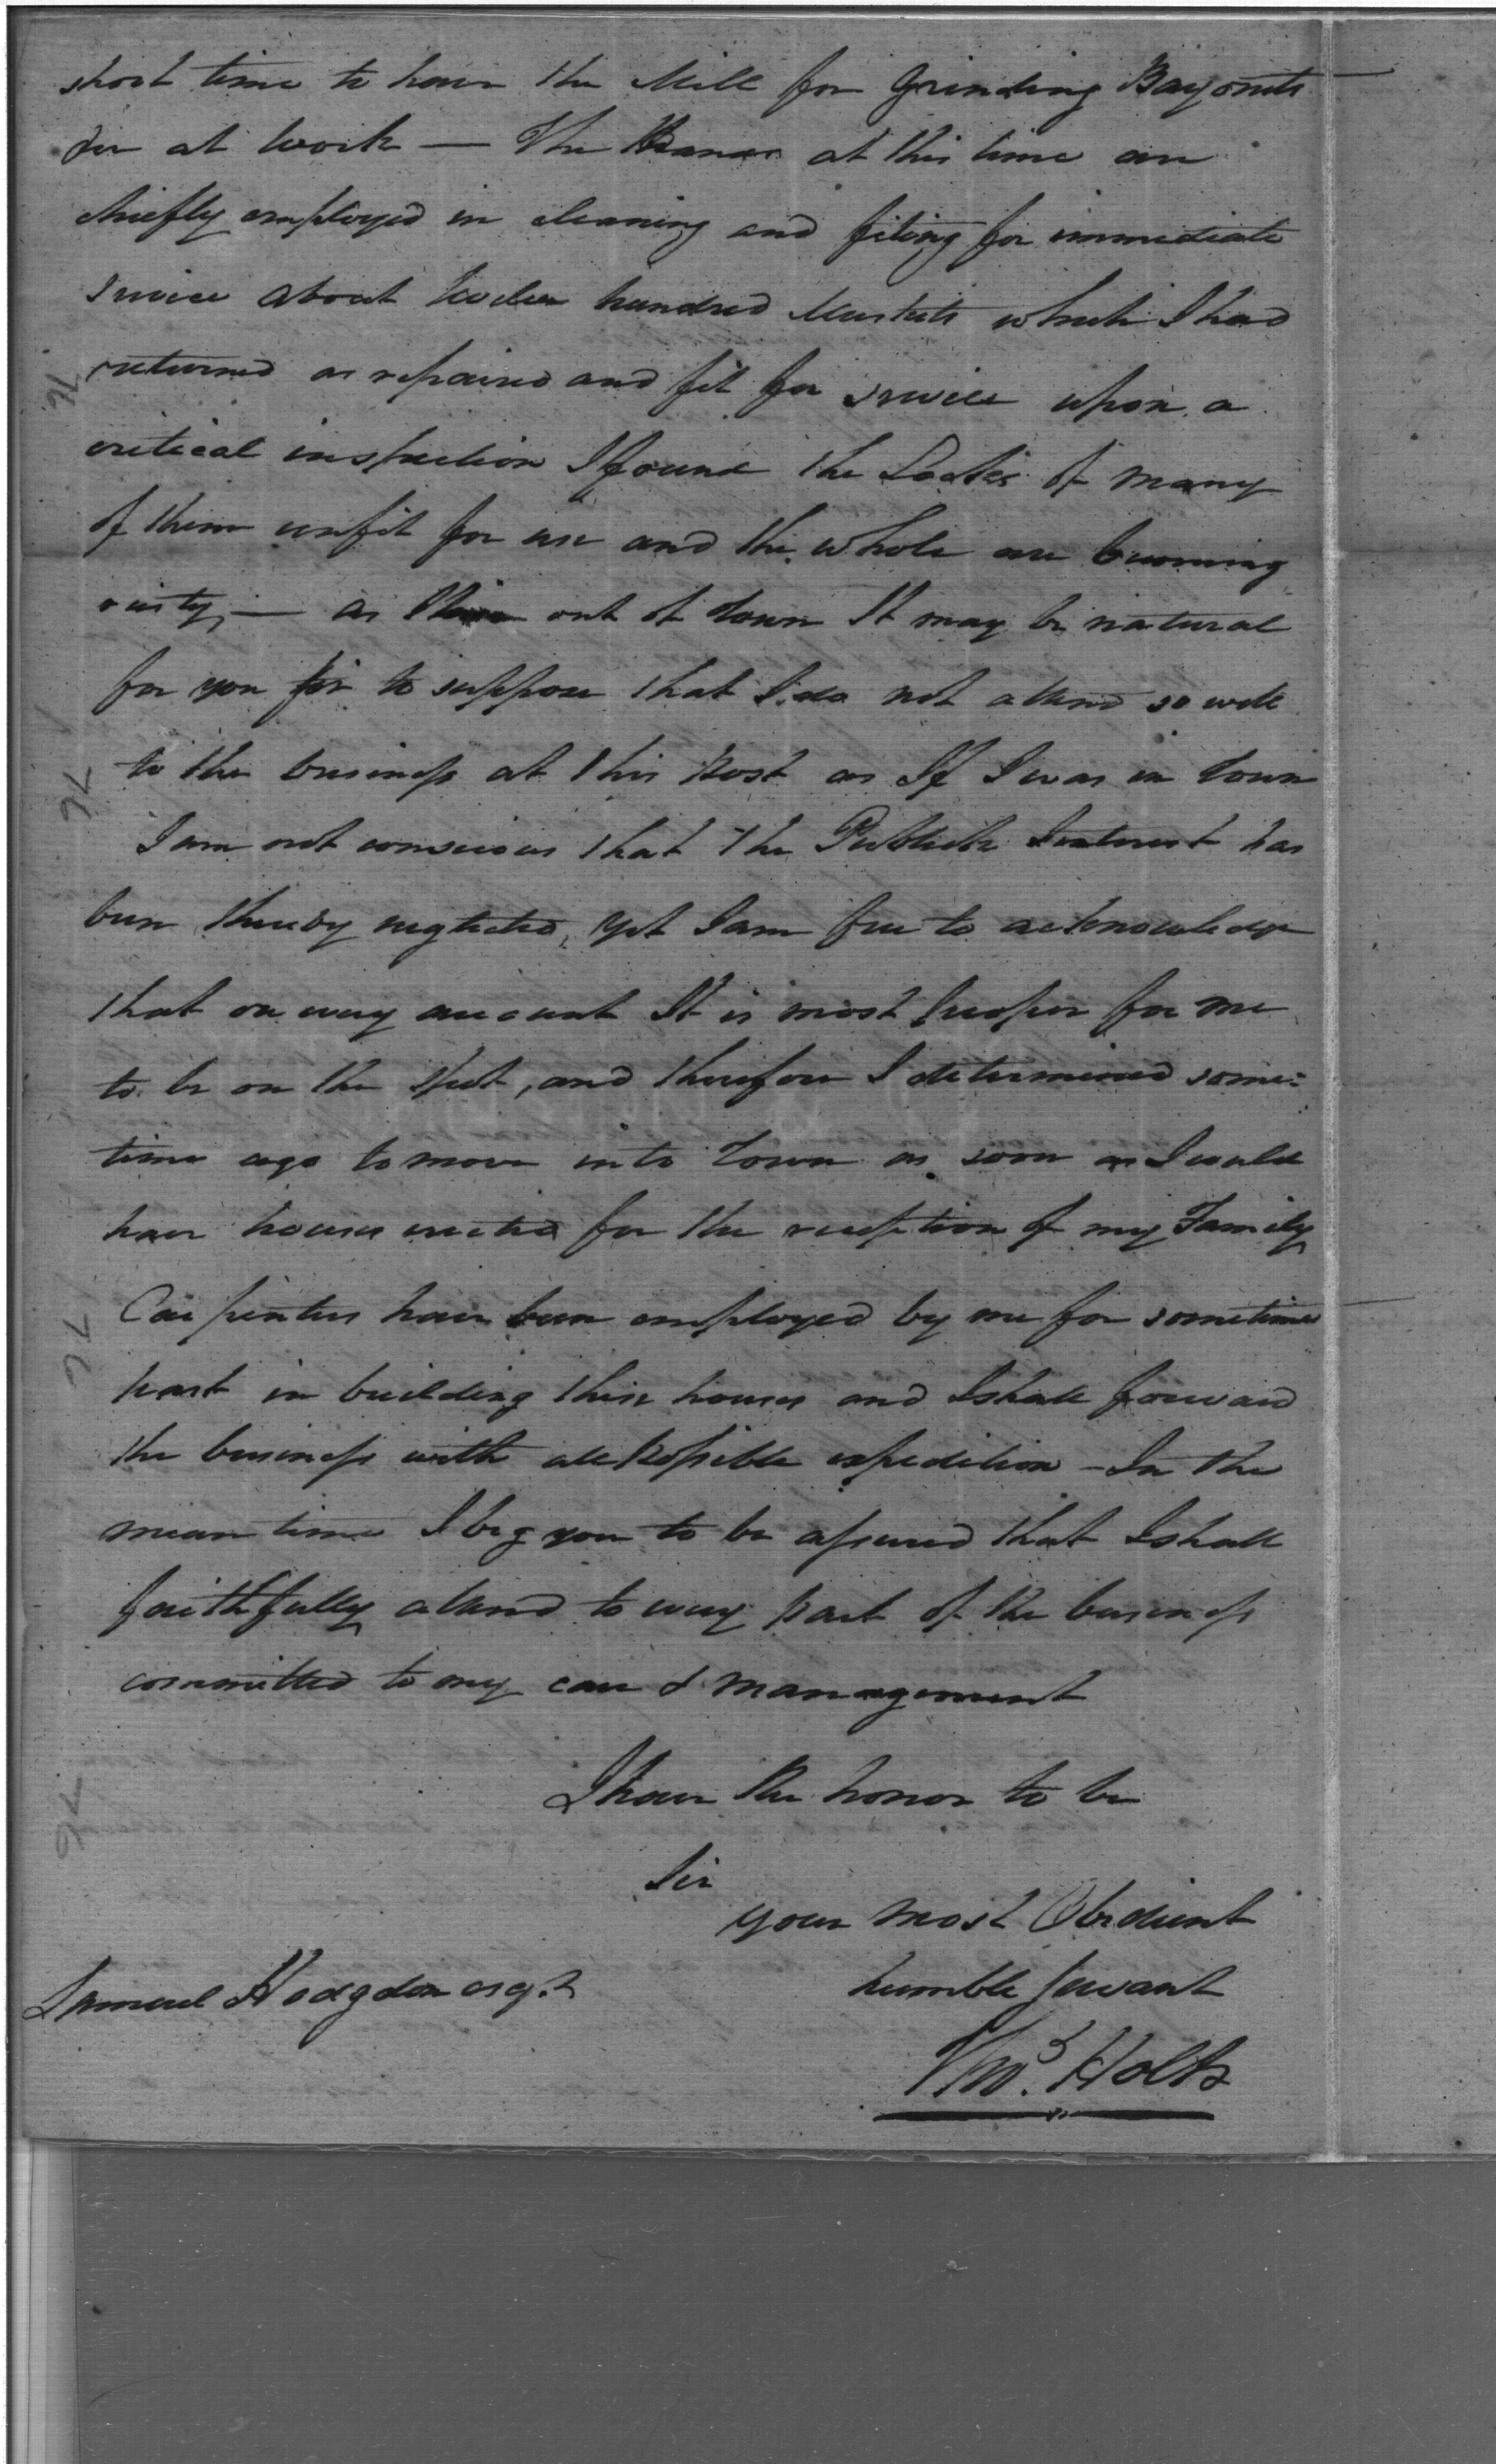 short time to have the Mill for Grinding Bayonets
at work — The at this time are
chiefly employed in cleaning and fiting for immediate
service about twelve hundred Muskets which I had
returned as repaired and fit for service upon a
critical inspection I found the Locks of many
of them unfit for use and the whole are becoming
rusty — as out of Town It may be natural
for you Sir to suppose that I do not attend so well
to the business at this Post as If I was in Town
I am not conscious that the Publick Interest has
been thereby neglected, yet I am free to acknowledge
that on every account It is most proper for me
to be on the spot, and therefore I determined some=
time ago to move into Town as soon as I could
have houses erected for the reception of my Family
Carpenters have been employed by me for sometime
past in building these houses and I shall forward
the business with all Possible expedition — In the
mean time I beg you to be assured that I shall
faithfully attend to every part of the business
committed to my care & management
I have the honor to be
Sir
your most Obedient
humble servant
Samuel Hodgdon esqr.
Thos. Holt
76
76
76
76